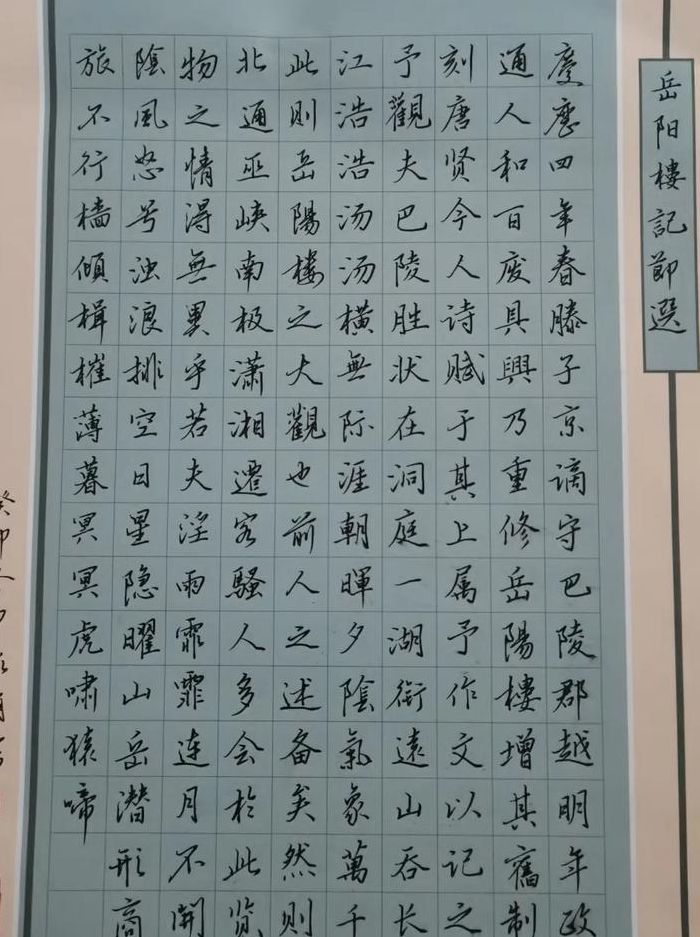 岳阳樓記節選
慶曆四年春滕子京谪守巴陵郡越明年政
通人和百废具興乃重修岳陽樓增其舊制
刻唐贤今人诗赋于其上属予作文以记之
予觀夫巴陵胜状在洞庭一湖衔遠山吞长
江浩浩汤汤横無际涯朝暉夕陰氣象萬千
此则岳陽楼之大觀也前人之述备矣然则
北通巫峡南极潇湘遷客騷人多会於此览
物之情得無異乎若夫淫雨霏霏连月不開
陰風怒号浊浪排空日星隐曜山岳潜形商
旅不行檣傾楫摧薄暮冥冥虎啸猿啼
癸卯